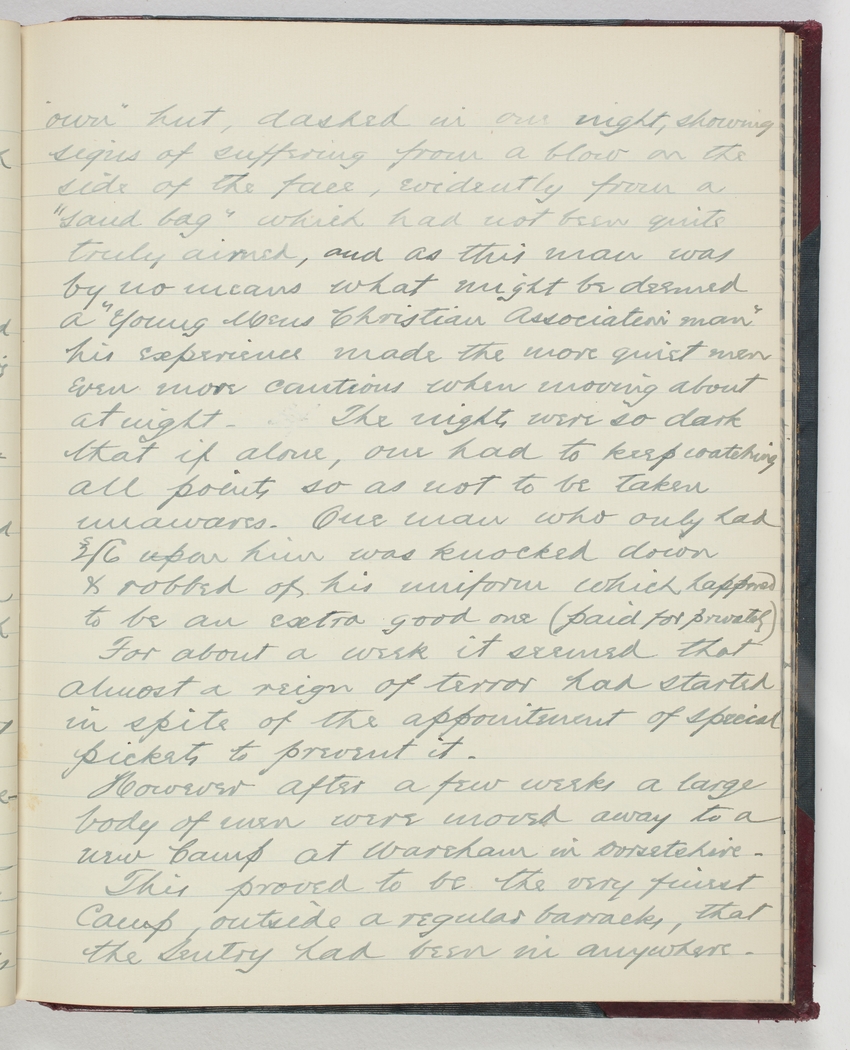 own" hut, dashed in one night, showing
signs of suffering from a blow on the
side of the face, evidently from a
"sand bag" which had not been quite
truly aimed, and as this man was
by no means what might be deemed
a "Young Mens Christian Association man"
his experience made the more quiet men
even more cautious when moving about
at night - The nights were so dark
that if alone, one had to keep watching
all points so as not to be taken
unawares. One man who only had
2s/6 upon him was knocked down
& robbed of his uniform which happened
to be an extra good one (paid for privately)
For about a week it seemed that
almost a reign of terror had started
in spite of the appointement of special
pickets to prevent it.
However after a few weeks a large
body of men were moved away to a
new Camp at Wareham in Dorsetshire.
This proved to be the very finest
Camp, outside a regular barracks, that
the Sentry had been in anywhere.